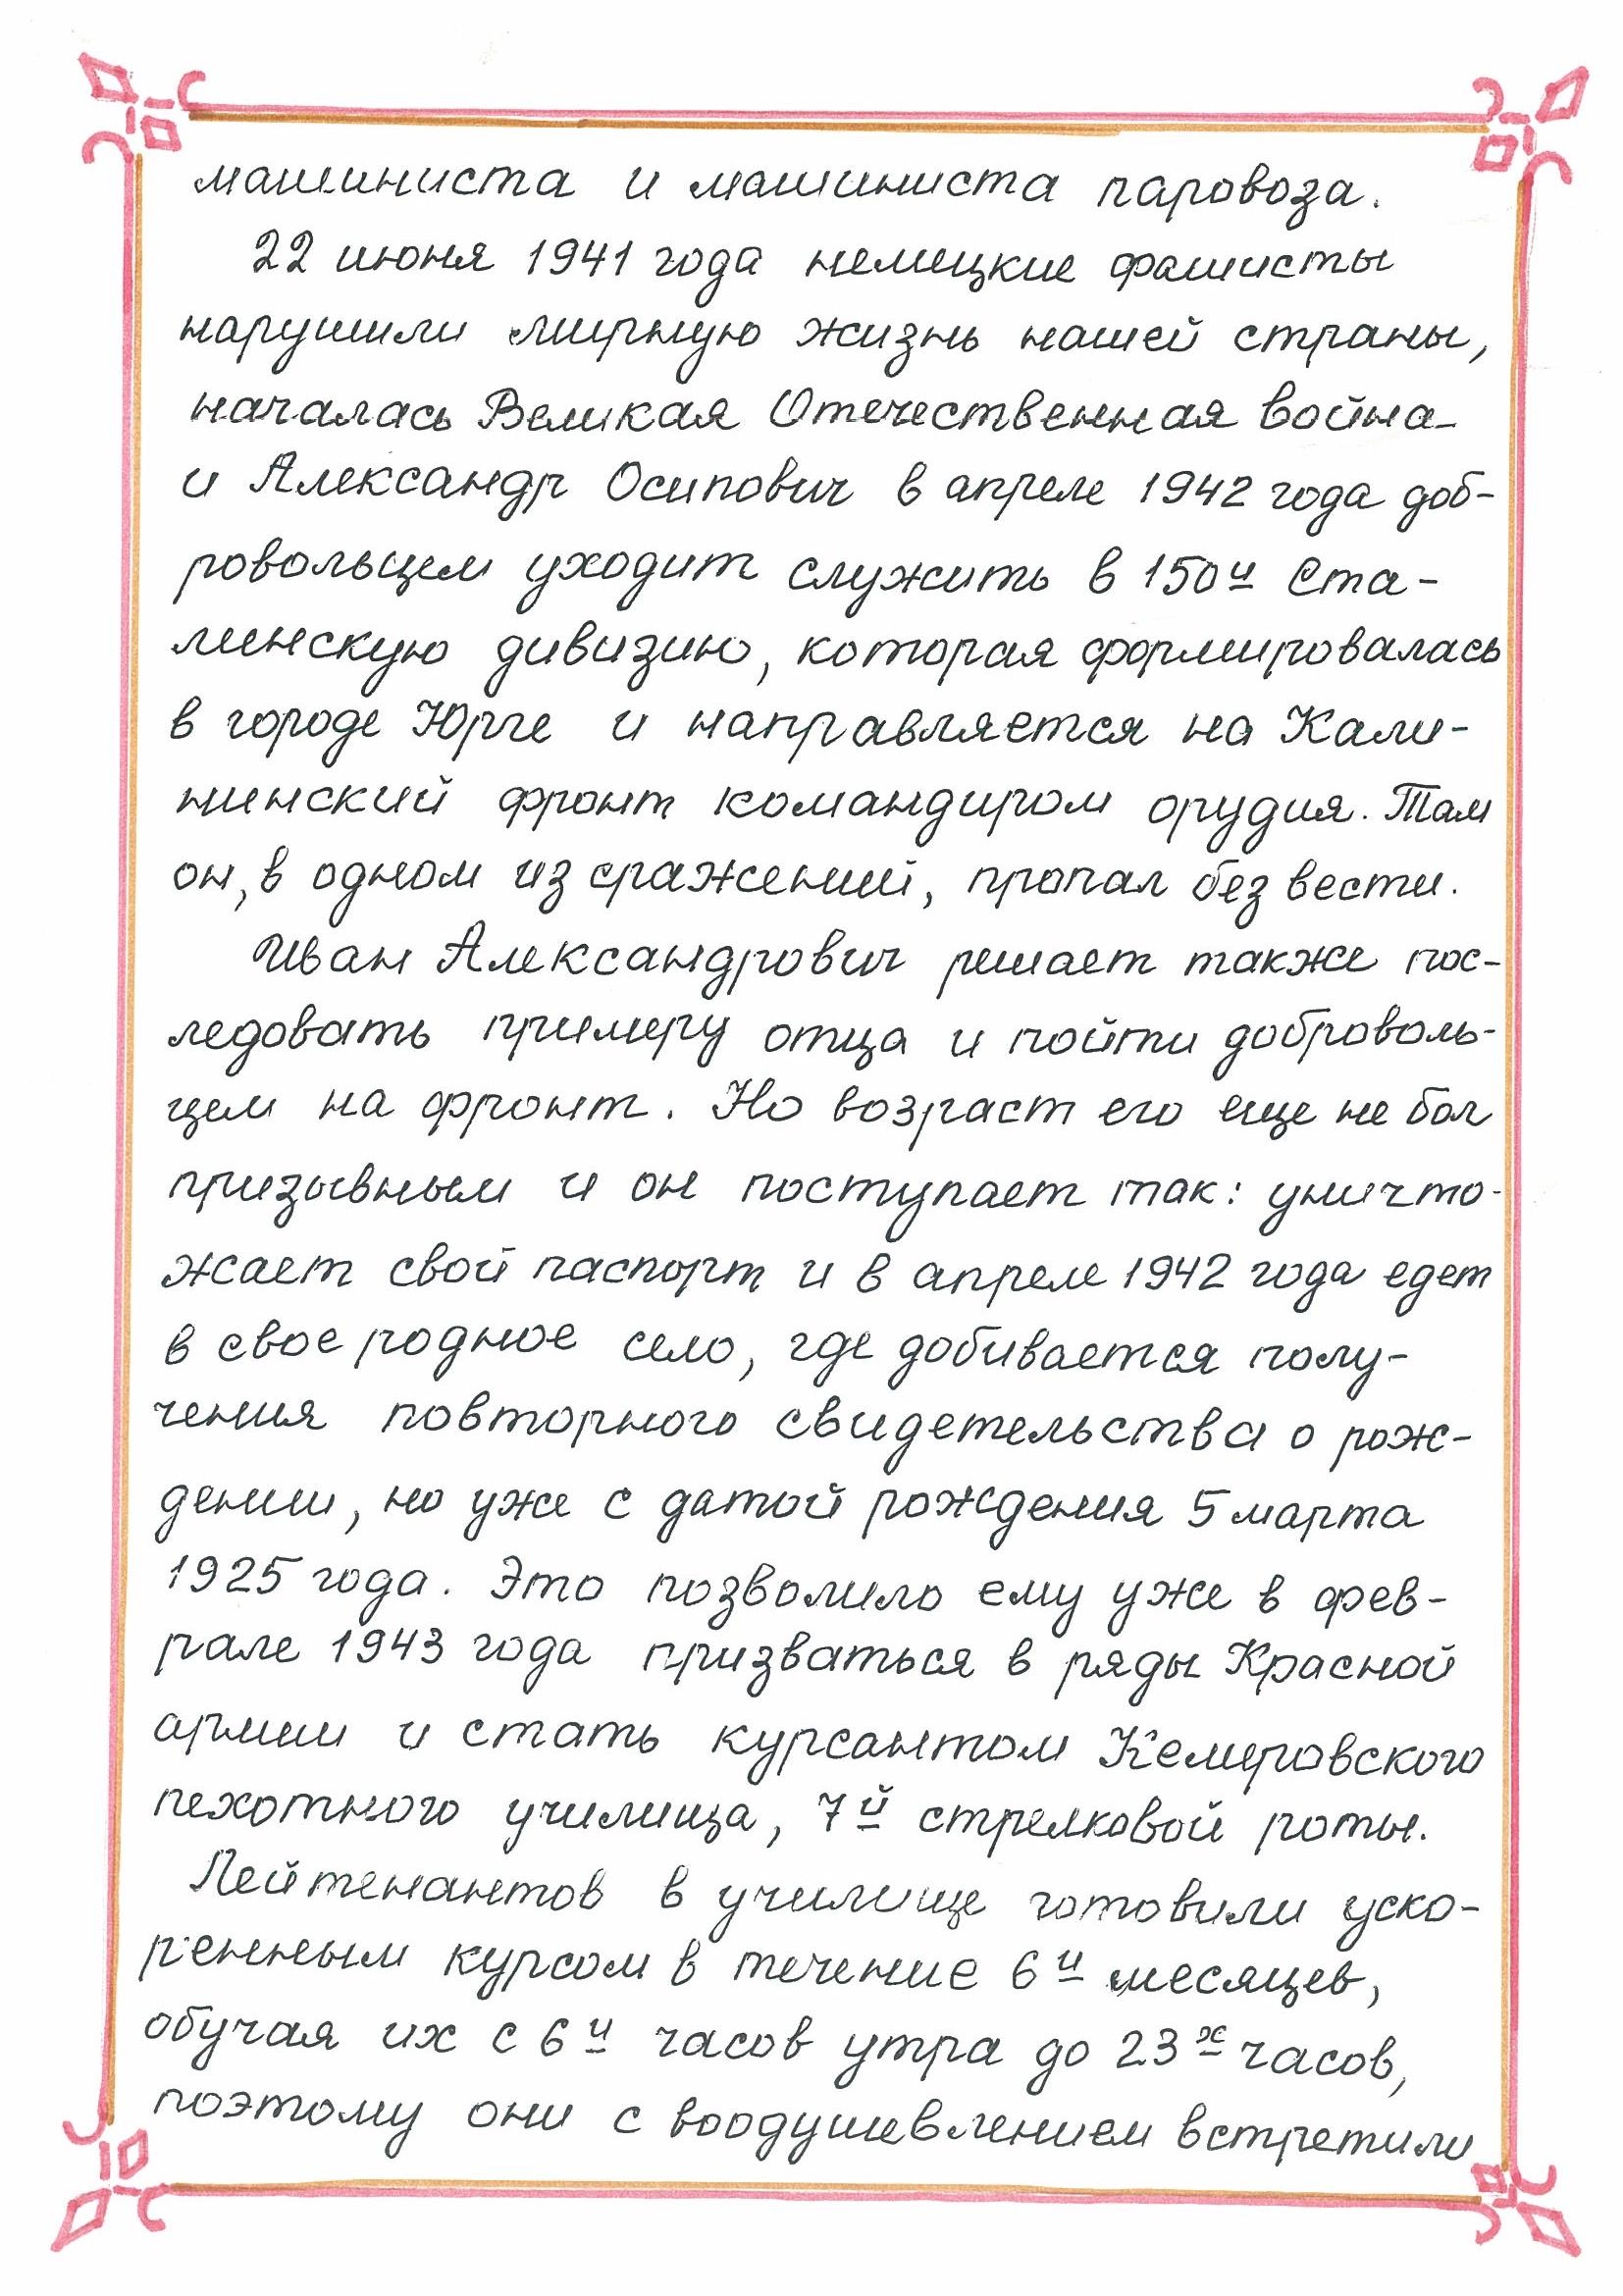 машиниста и машиниста паровоза.
22 июня 1941 года немецкие фашисты
нарушили мирную жизнь нашей страны,
началась Великая Отечественная война
и Александр Осипович в апреле 1942 года доб-
ровольцем уходит служить в 150й Ста-
линскую дивизию, которая формировалась
в городе Юрге и направляется на Кали-
нинский фронт командиром орудия. Там
он, в одном из сражений, пропал без вести.
Иван Александрович решает также пос-
ледовать примеру отца и пойти доброволь-
цем на фронт. Но возраст его еще не был
призывным и он поступает так: уничто-
жает свой паспорт и в апреле 1942 года едет
в свое родное село, где добивается полу-
чения повторного свидетельства о рож-
дении, но уже с датой рождения 5 марта
1925 года. Это позволило ему уже в фев-
рале 1943 года призваться в ряды Красной
армии и стать курсантом Кемеровского
пехотного училища, 7й стрелковой роты.
Лейтенантов в училище готовили уско-
ренным курсом в течение 6и месяцев,
обучая их с 6и часов утра до 23х часов,
поэтому они с воодушевлением встретили